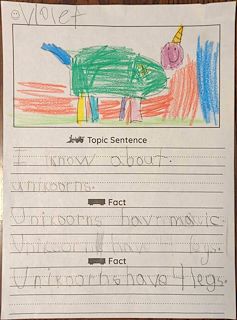 Violet
Topic Sentence
I know about.
unikoorns.
Fact
Unikoorns havr
Unikoorn hav legs.
Fact
Unikoorns have 4 legs.